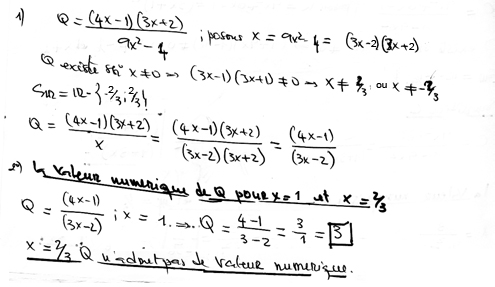 1) Q = (4x-1)(3x+2) / 9x²-4 ; posons x = 9x²-4 = (3x-2)(3x+2)
Q existe ssi x ≠ 0 ⇒ (3x-1)(3x+1) ≠ 0 ⇒ x ≠ 2/3 ; ou x ≠ -2/3
= IR - {-2/3 ; 2/3}
Q = (4x-1)(3x+2) / x = (4x-1)(3x+2) / (3x-2)(3x+2) = (4x-1) / (3x-2)
2) la valeur numerique de Q pour x=1 et x = 2/3
Q = (4x-1) / (3x-2) ; x = 1. ⇒ Q = 4-1 / 3-2 = 3/1 = 3
x = 2/3 Q n'admet pas de valeur numerique.